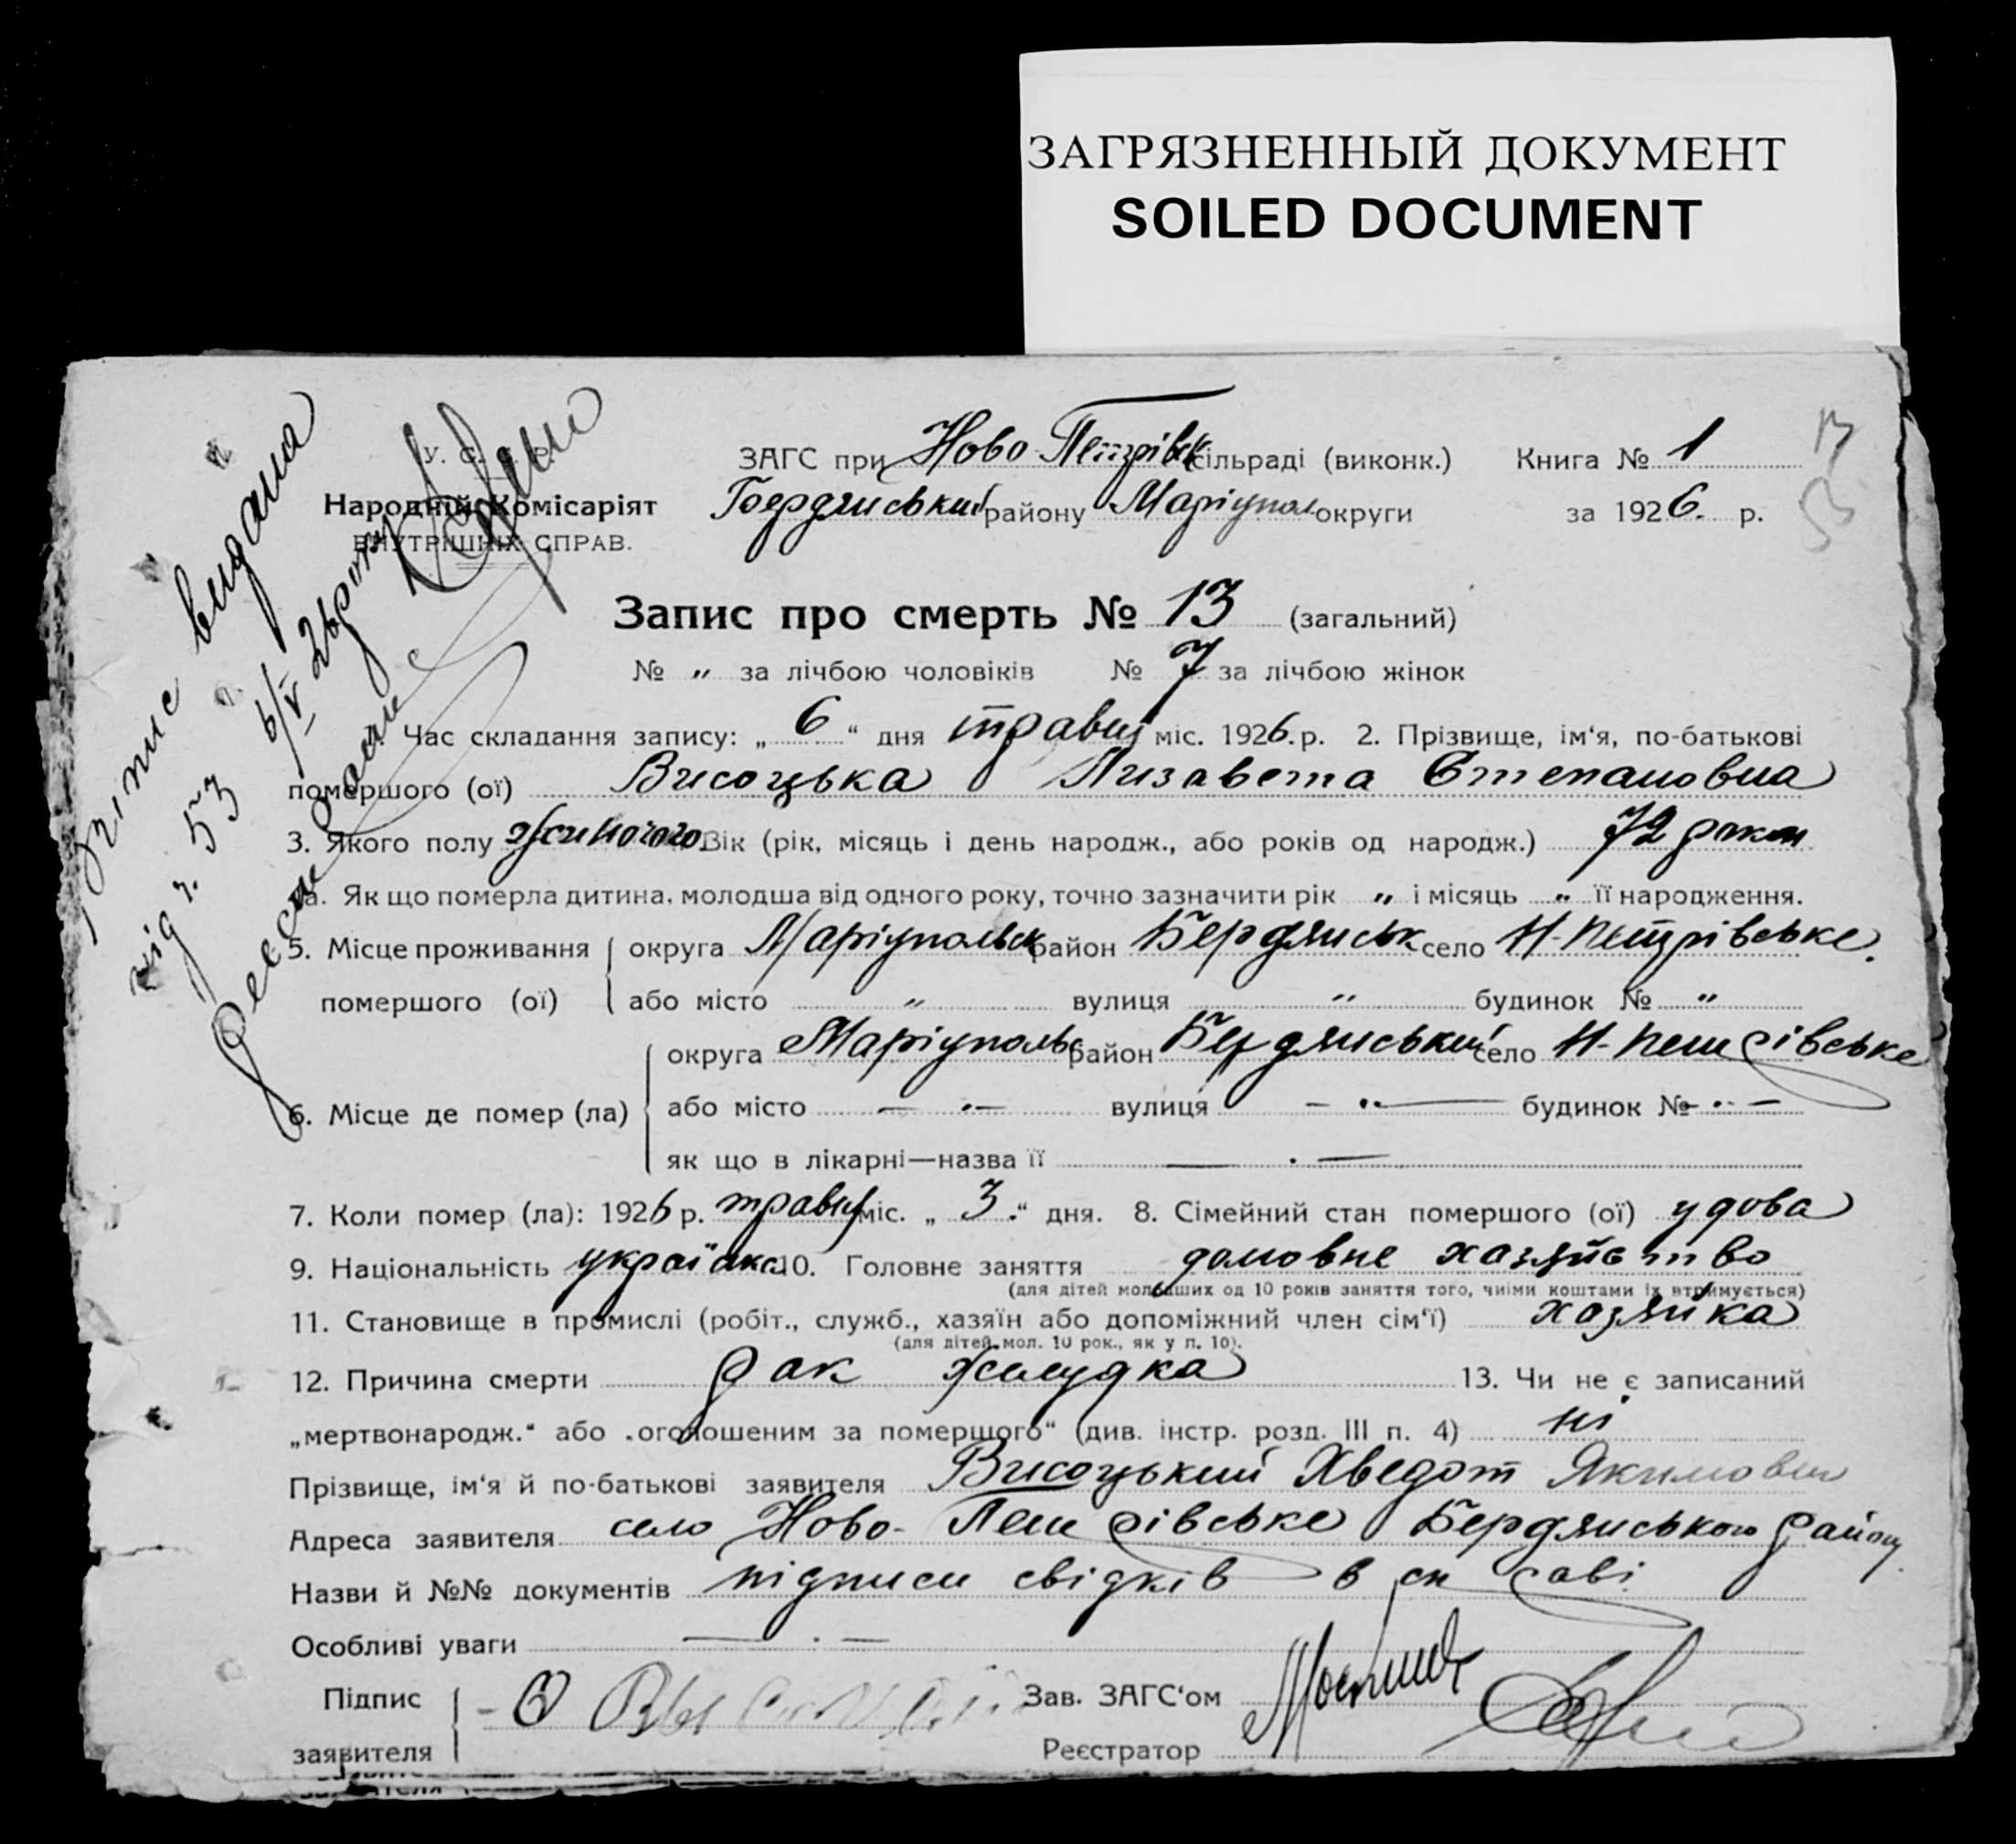 ЗАГРЯЗНЕННЫЙ ДОКУМЕНТ
SOILED DOCUMENT
У. С. Р. Р.
Народній Комісаріят
ВНУТРІШНІХ СПРАВ.
ЗАГС при Ново-Петрівськ сільраді (виконк.) Книга № 1
Бердянський району Маріупол округи за 1926. р.
13
53
Витис видана
від ч. 53 6/V 26 року
Запис про смерть № 13 (загальний)
№ " за лічбою чоловіків № 7 за лічбою жінок
1. Час складання запису: „ 6 “ дня травня міс. 1926. р. 2. Прізвище, ім'я, по-батькові
помершого (ої) Висоцька Лизавета Степановна
3. Якого полу жиночого Вік (рік, місяць і день народж., або років од народж.) 72 роки
4а. Як що померла дитина, молодша від одного року, точно зазначити рік " і місяць " її народження.
5. Місце проживання помершого (ої) округа Маріупольськ район Бердянськ село Н-Петрівське.
або місто " вулиця " будинок № "
6. Місце де помер (ла) округа Маріупольс район Бердянський село Н-Петрівське
або місто — „ — вулиця — „ — будинок № — „ —
як що в лікарні—назва її —
7. Коли помер (ла): 1926 р. травня міс. „ 3. “ дня. 8. Сімейний стан помершого (ої) удова
9. Національність українка 10. Головне заняття домовне хазяйство
(для дітей молодших од 10 років заняття того, чиїми коштами їх втримується)
11. Становище в промислі (робіт., служб., хазяїн або допоміжний член сім'ї) хазяйка
(для дітей мол. 10 рок., як у п. 10).
12. Причина смерти рак желудка 13. Чи не є записаний
„мертвонародж.“ або „оголошеним за помершого“ (див. інстр. розд. III п. 4) ні
Прізвище, ім'я й по-батькові заявителя Висоцький Хведот Якимович
Адреса заявителя село Ново-Петрівське Бердянського району
Назви й №№ документів підписи свідків в
Особливі уваги —
Підпис заявителя Ф
Зав. ЗАГС'ом
Реєстратор